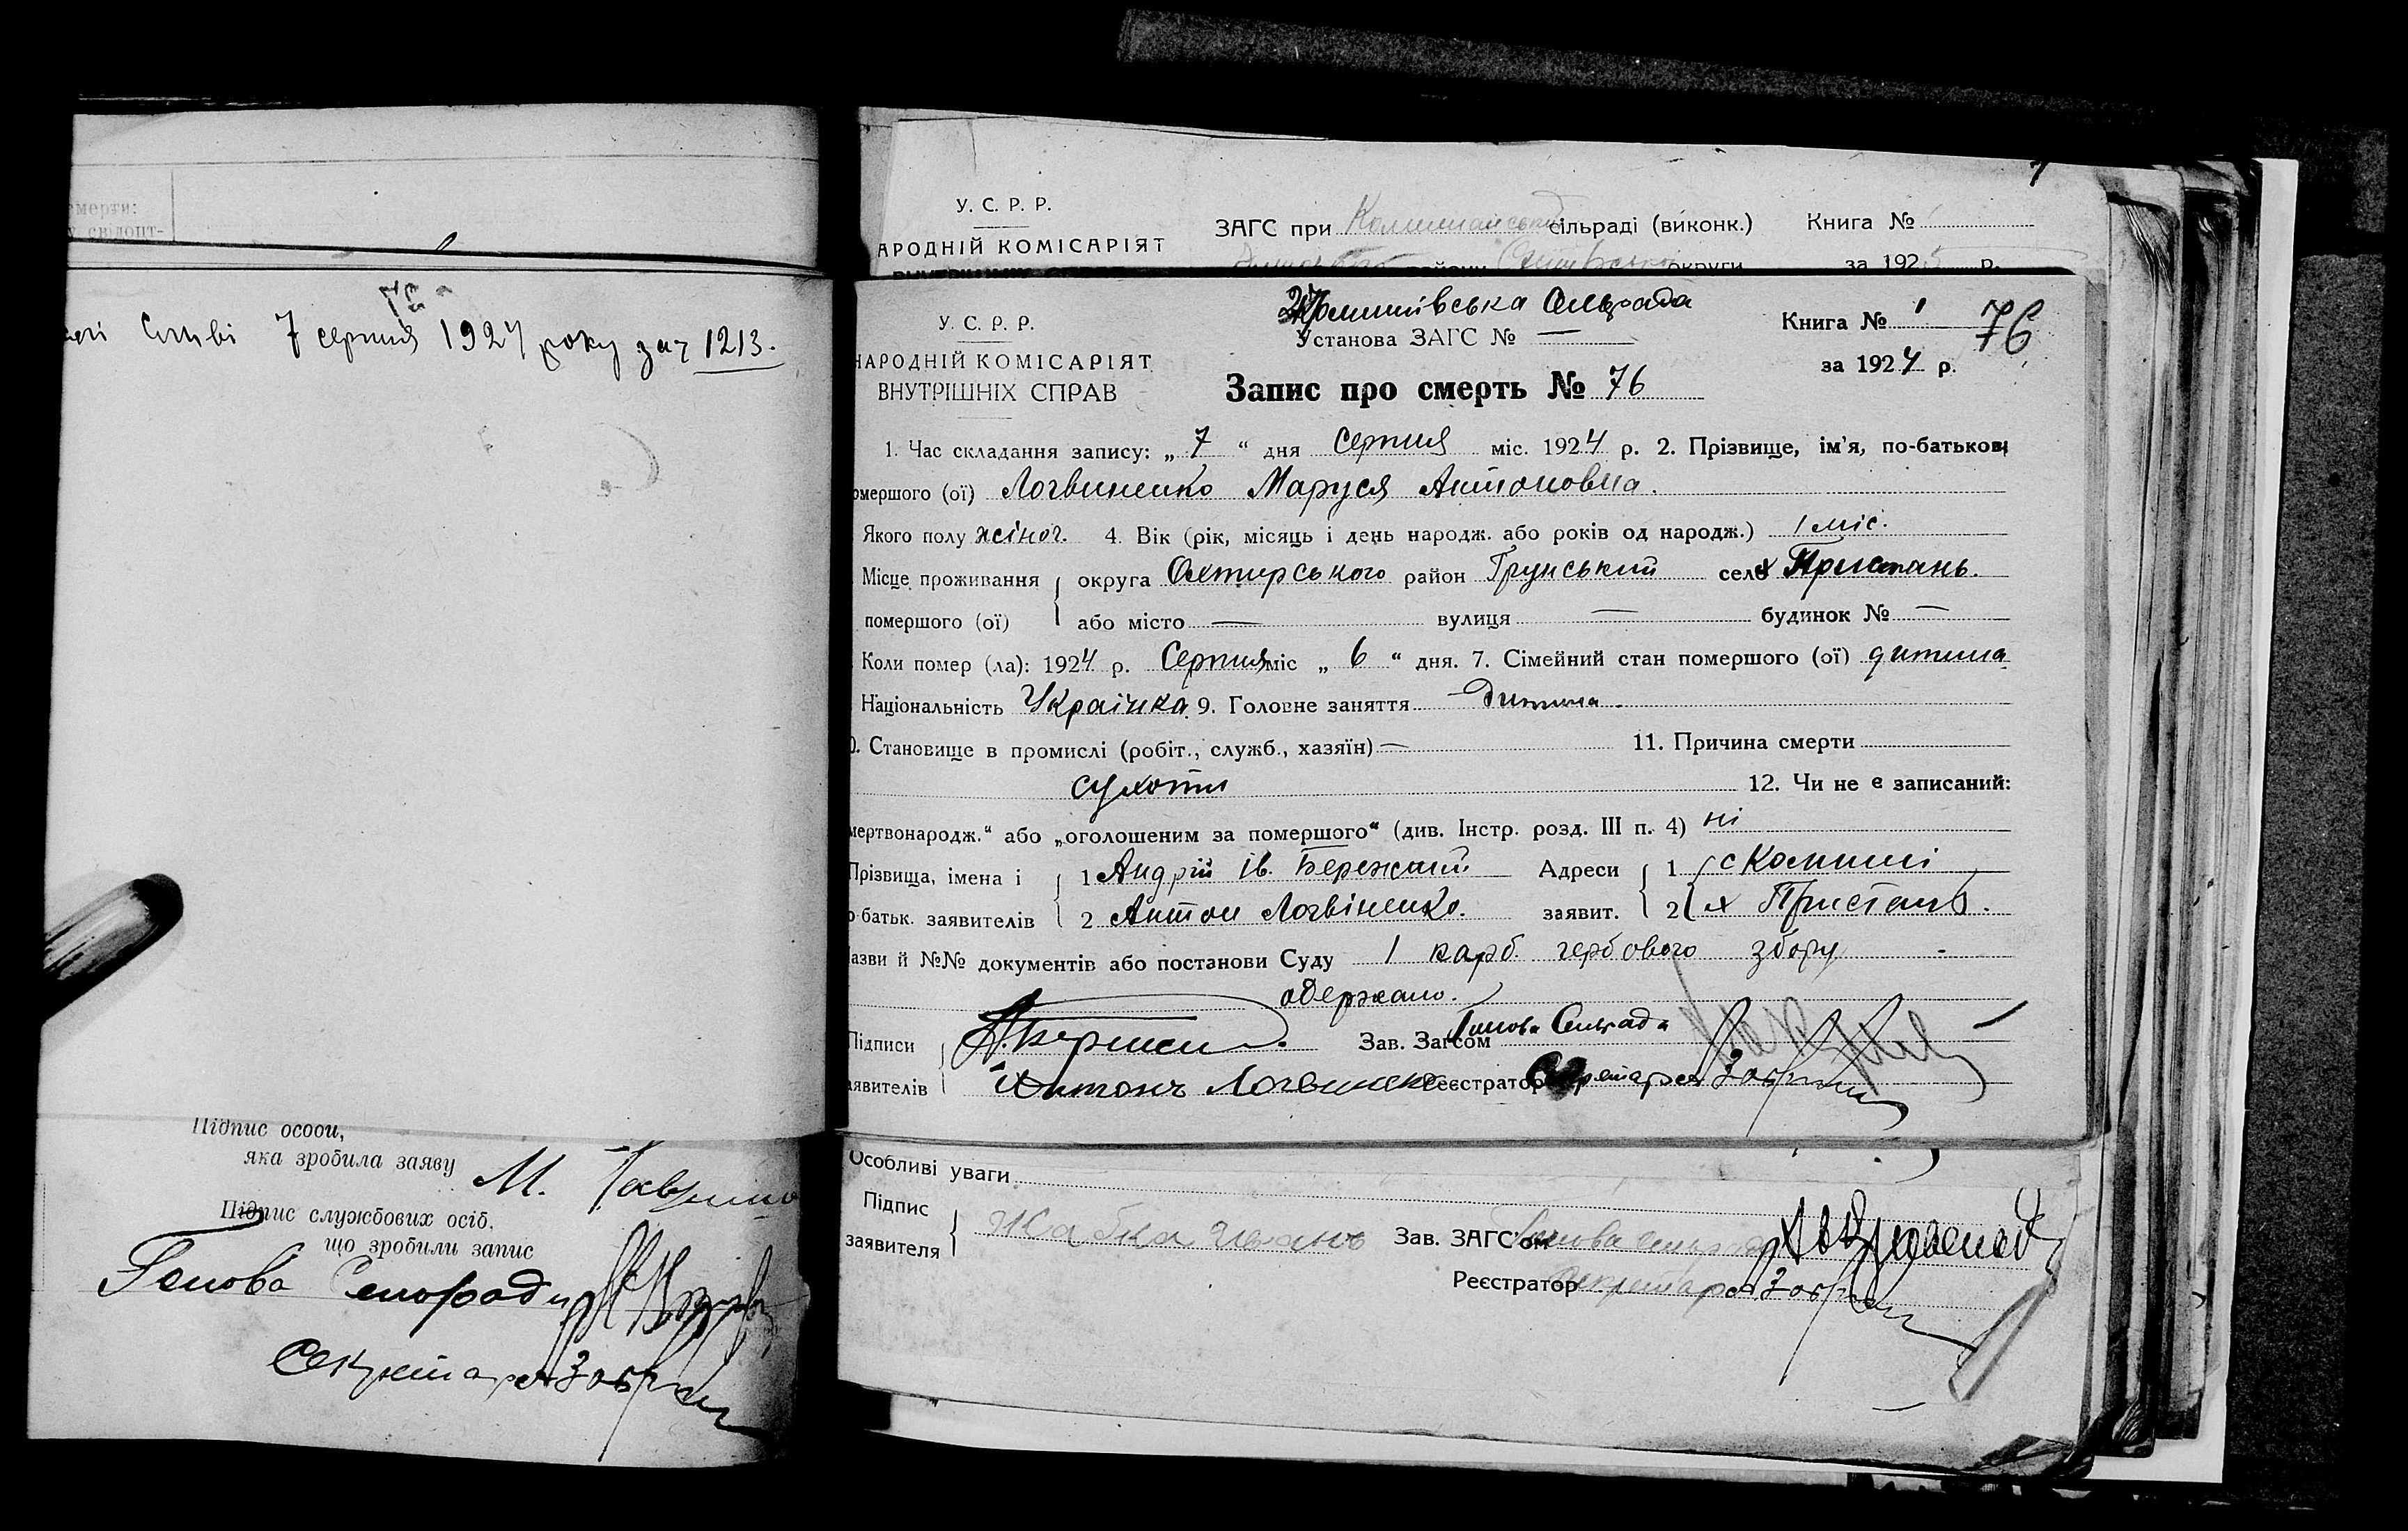 мерти:
у свідоцт-
Сливі 7 серпня 1924 року за ч 1213.
Підпис особи,
яка зробила заяву М.
Підпис службових осіб,
що зробили запис
Голова Сельради
Секретар
У. С. Р. Р.
АРОДНІЙ КОМІСАРІЯТ
ЗАГС при сільраді (виконк.) Книга №
району округи за 192 р.
сільрада
У. С. Р. Р.
НАРОДНІЙ КОМІСАРІЯТ
ВНУТРІШНІХ СПРАВ
Установа ЗАГС № —
Книга № 1 76
за 1924 р.
Запис про смерть № 76
1. Час складання запису: „ 7 “ дня Серпня міс. 1924 р. 2. Прізвище, ім’я, по-батькові
омершого (ої) Логвиненко Маруся Антоновна.
Якого полу жіноч. 4. Вік (рік, місяць і день народж. або років од народж.) 1 міс.
Місце проживання округа Охтирського район Грунський село х Пристань.
помершого (ої) або місто — вулиця — будинок № —
Коли помер (ла): 1924 р. Серпня міс „ 6 “ дня. 7. Сімейний стан помершого (ої) дитина
Національність Українка 9. Головне заняття дитина.
0. Становище в промислі (робіт., служб., хазяїн) — 11. Причина смерти
сухоти 12. Чи не є записаний:
мертвонародж.“ або „оголошеним за помершого“ (див. Інстр. розд. III п. 4) ні
Прізвища, імена і 1 Андрій Ів. Бережний Адреси 1 с Комиші
о батьк. заявителів 2 Антон Логвіненко. заявит. 2 х Пристань.
азви й №№ документів або постанови Суду 1 карб. гербового збору
одержано.
Підписи Зав. Загсом Голова Сельрада
аявителів Антонъ Логвиненко Реєстратор Секретар
Особливі уваги
Підпис
заявителя Жабка Иванъ Зав. ЗАГС'ом Голова
Реєстратор Секретар